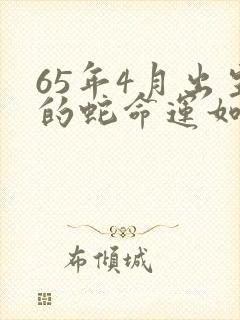 65年4月出生
的蛇命運如
布傾城